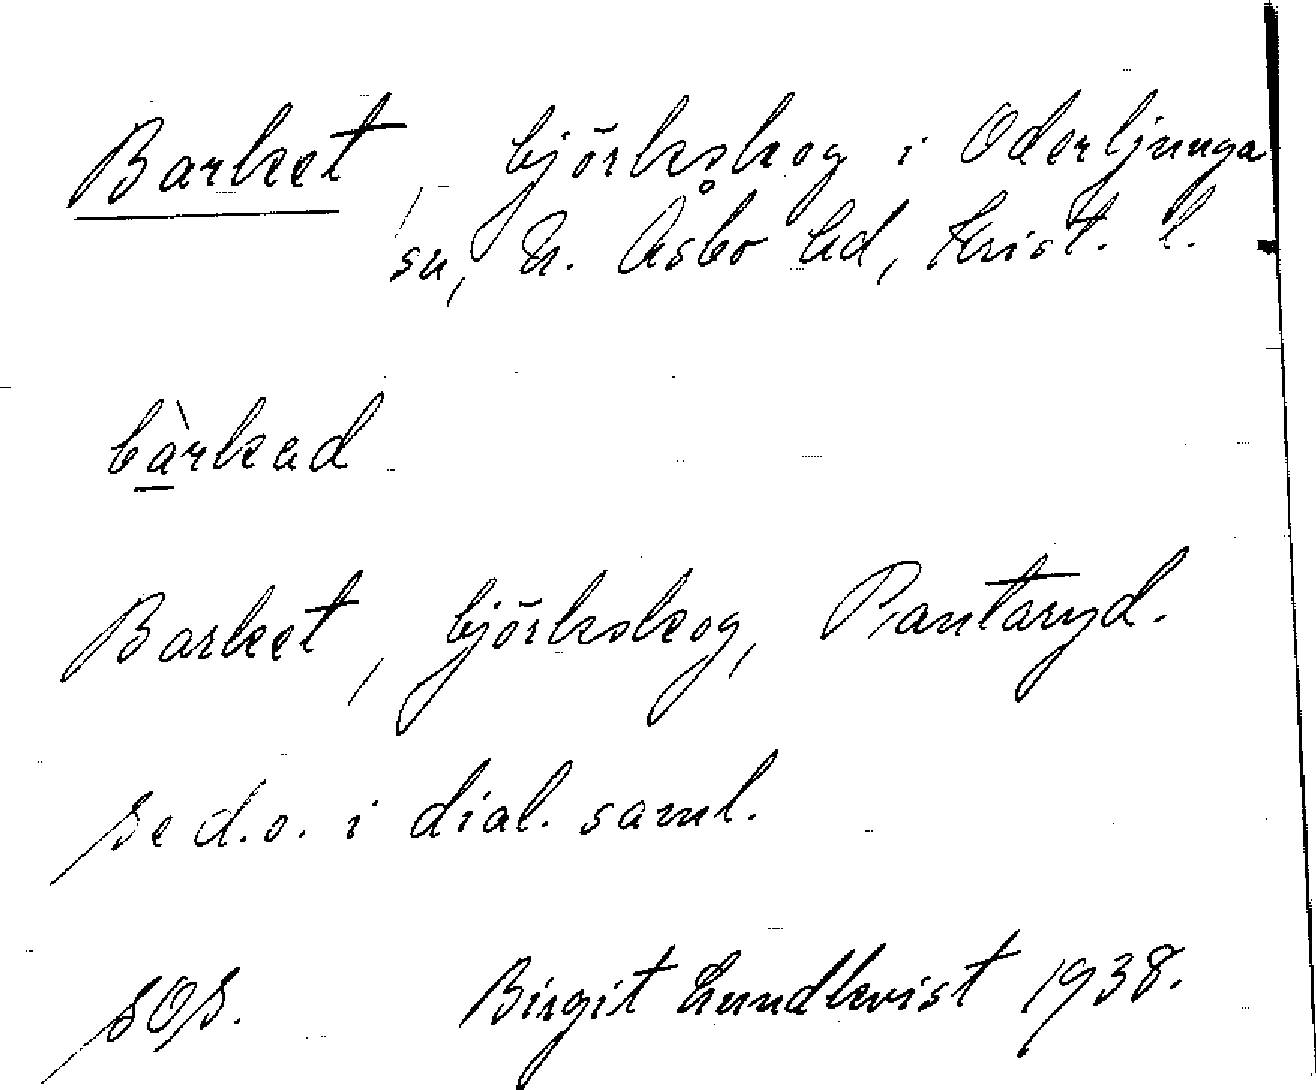 Barket, björkskog i Oderljunga
sn, N. Åsbo hd, Krist. l.
bàrkad
Barket, björkskog, Pantaryd.
Se d.o. i dial. saml.
SOS. Birgit Lundkvist 1938.